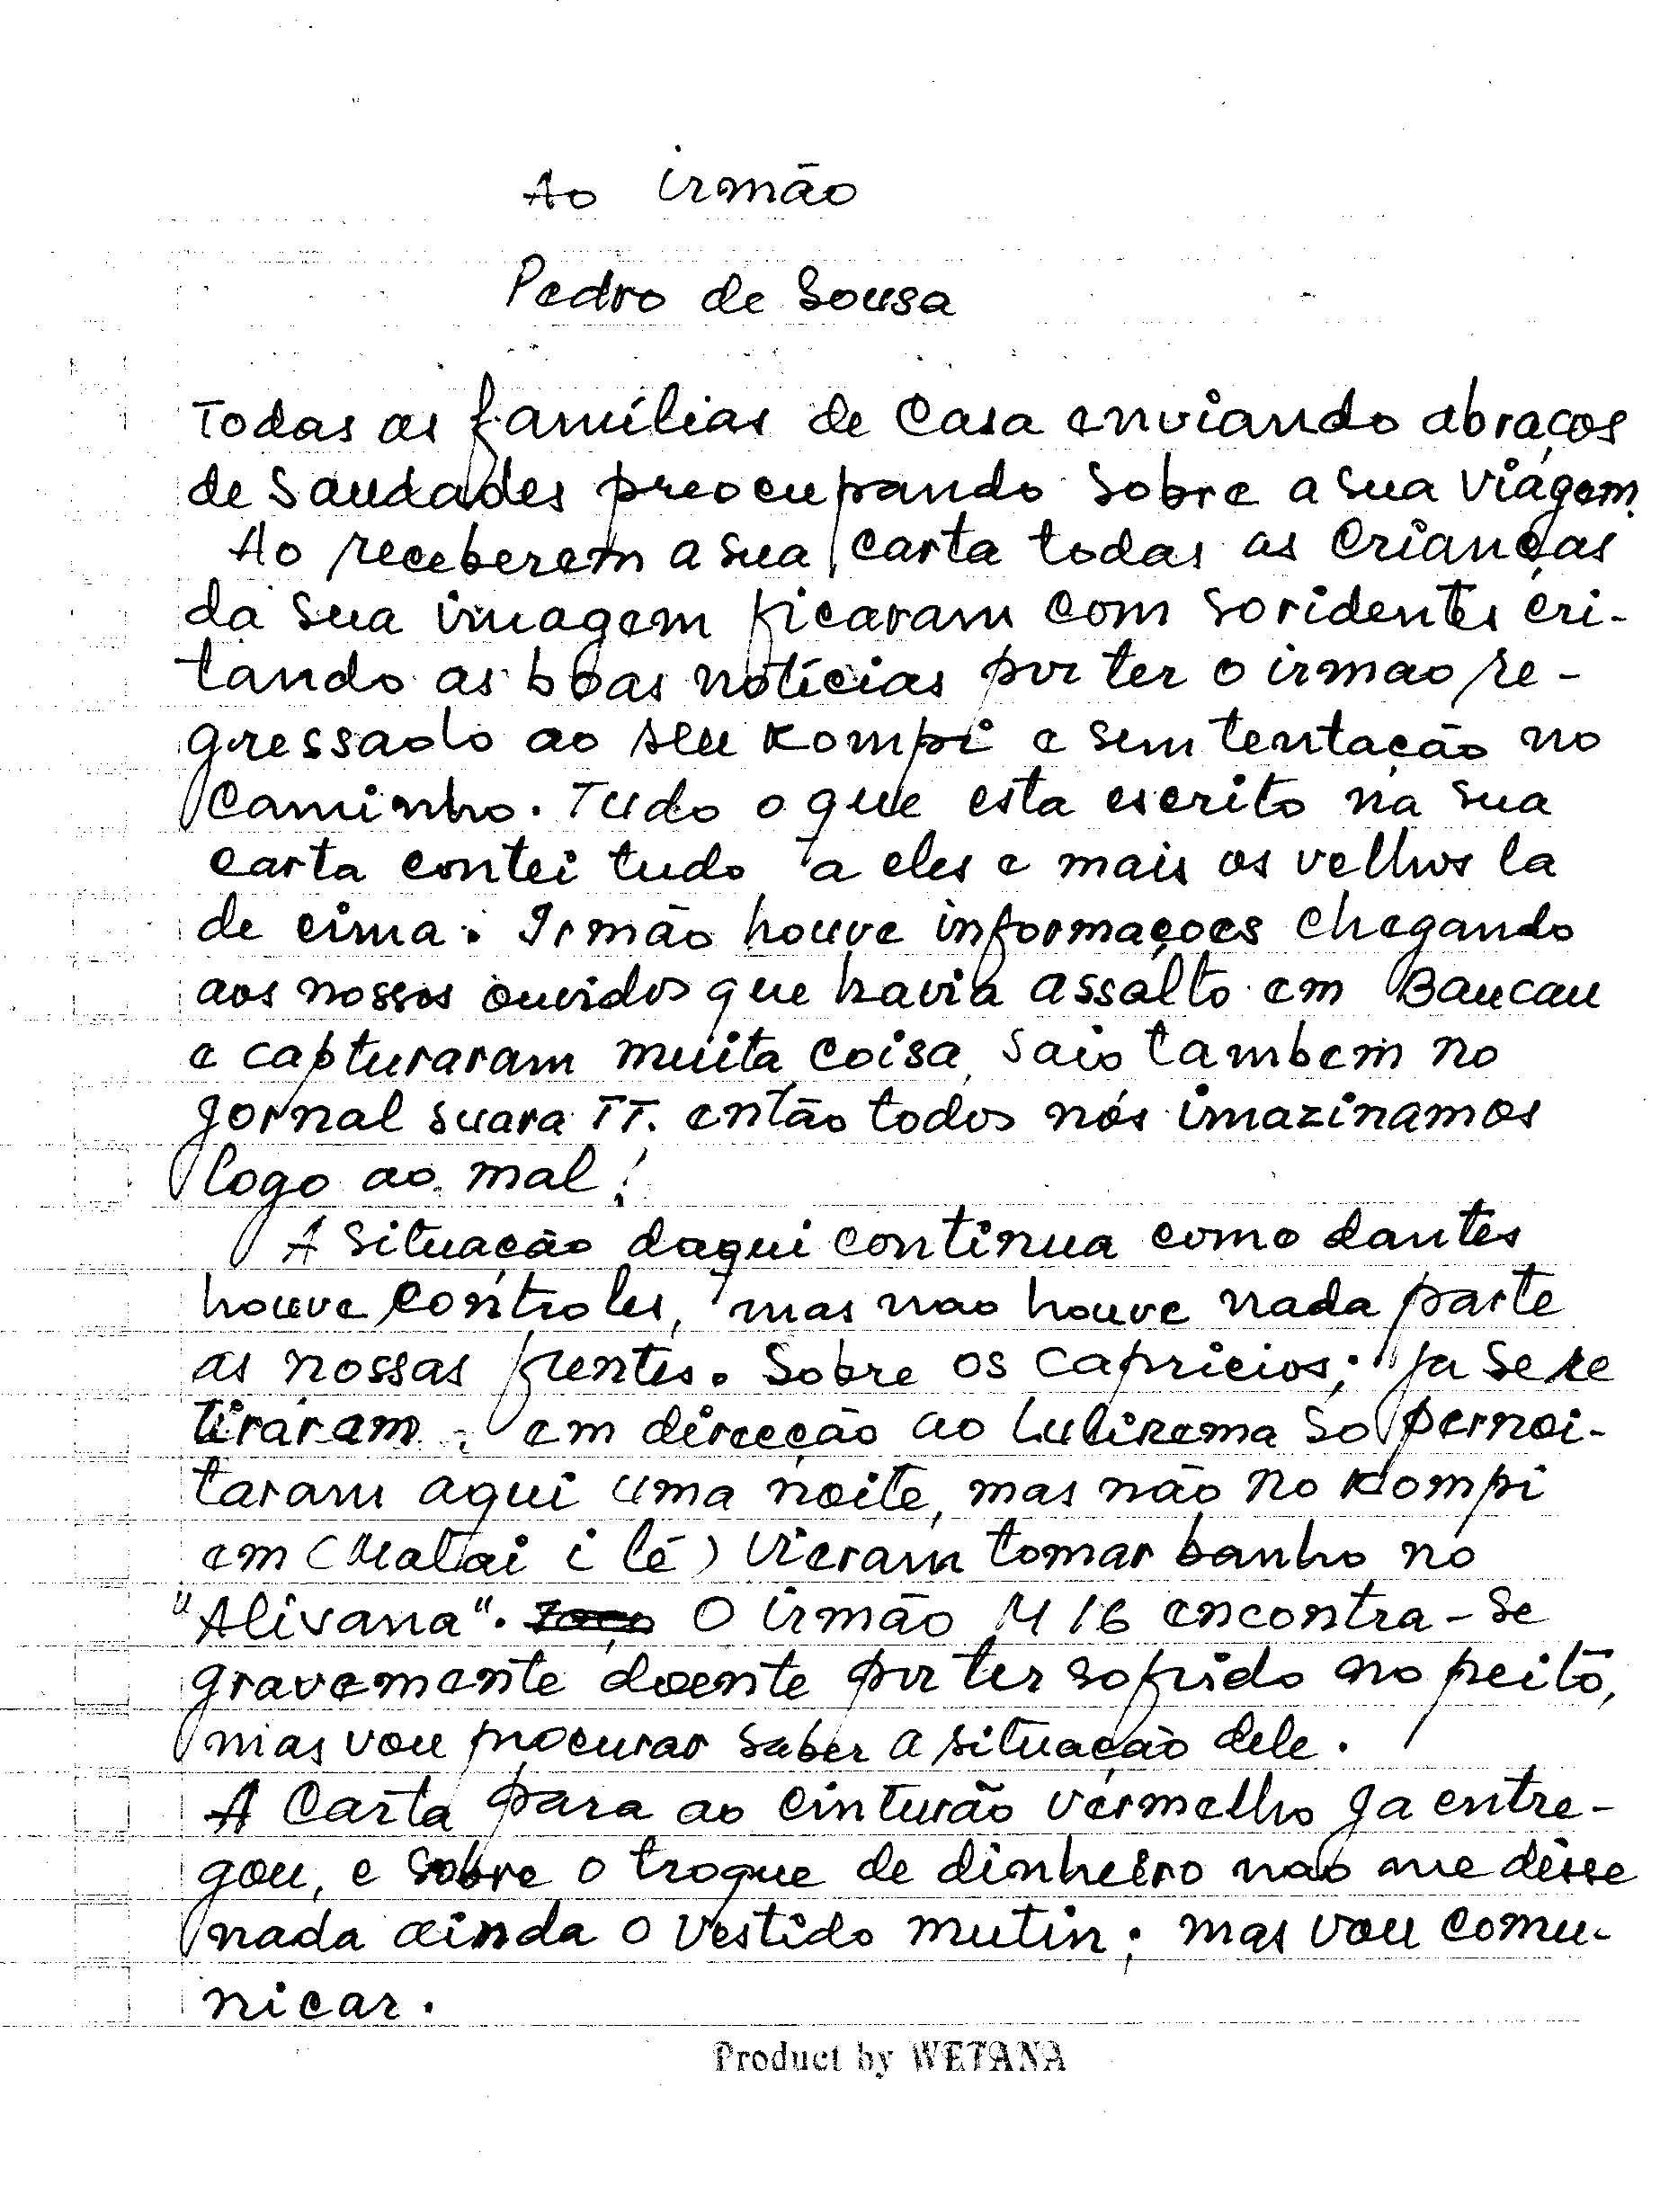 Ao irmão
Pedro de Sousa
Todas as famílias de Casa enviando abraços
de Saudades preocupando sobre a sua viágem.
Ao receberem a sua carta todas as Crianças
da sua imagem ficaram com soridentes cri-
tando as boas notícias por ter o irmao re-
gressado ao seu Kompi e sem tentação no
Caminho. Tudo o que esta escrito na sua
carta contei tudo a eles e mais os velhos la
de cima. Irmão houve informaçoes chegando
aos nossos ouvidos que havia assalto em Baucau
e capturaram muita coisa, saio tambem no
Jornal suara TT. então todos nós imazinamos
logo ao mal!
A situação daqui continua como dantes
houve controles, mas nao houve nada parte
as nossas frentes. Sobre os capricios; ja se re
tiraram em direcção ao Lulirema so pernoi-
taram aqui uma noite, mas não no Kompi
em (Matai i lé) Vieram tomar banho no
"Alivana". O irmão M 16 encontra-se
gravemente doente por ter sofrido no peito,
mas vou procurar saber a situação dele.
A Carta para ao cinturão vermelho ja entre-
gou, e sobre o troque de dinheiro nao me disse
nada ainda o Vestido mutin; mas vou comu-
nicar.
Product by WETANA